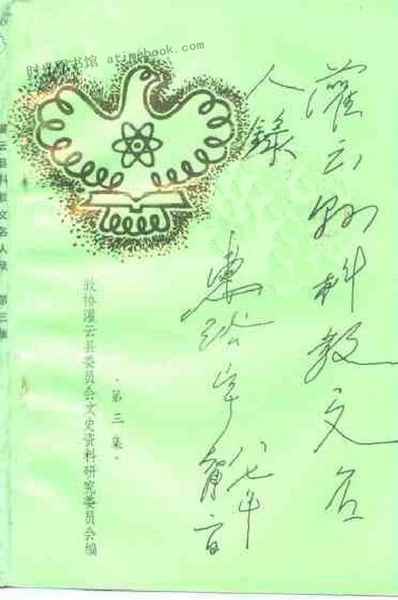 时光图书馆 atimebook.com
灌云县科教文名
人錄
惠浴宇
八七年
·第三集·
政协灌云县委员会文史资料研究委员会编
灌云县科教文名人录 第三集